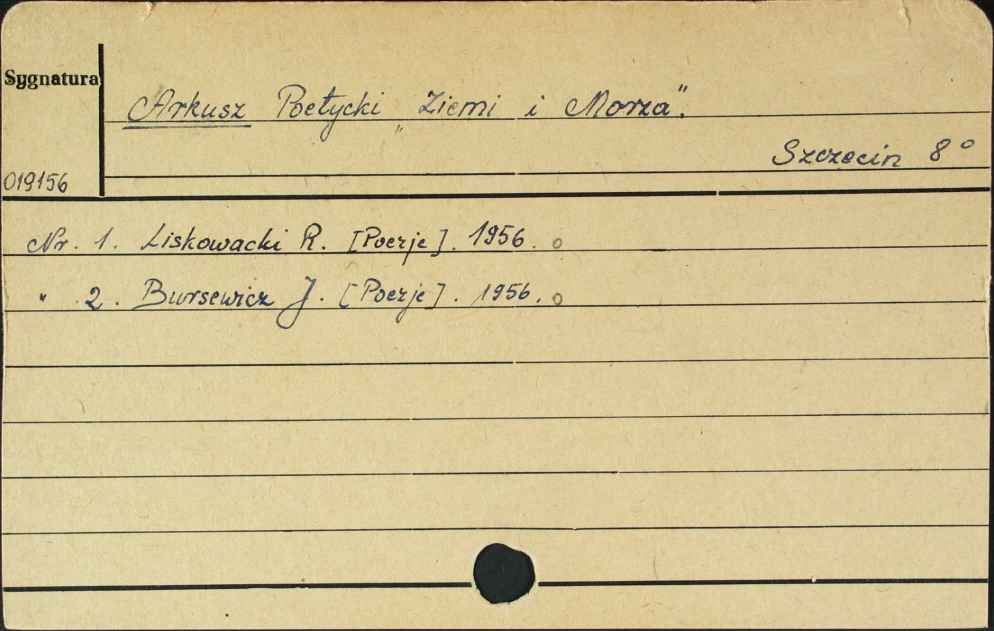 Sygnatura
Arkusz Poetycki „Ziemi i Morza".
Szczecin 8°
019156
Nr. 1. Liskowacki R. [Poezje]. 1956. o
" 2. Bursewicz J. [Poezje]. 1956. o